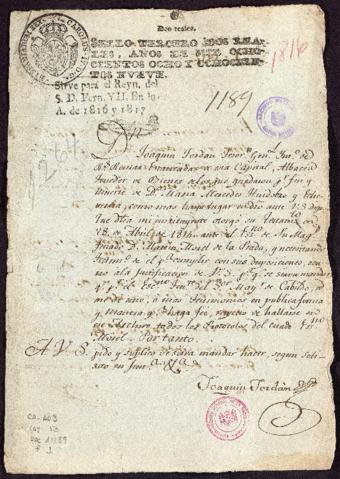 Dos reales.
SELLO TERCERO DOS REA-
LES, AÑOS DE MIL OCHO-
CIENTOS OCHO Y OCHOCIEN-
TOS NUEVE.
Sirve para el Reyn. del
S. D. Fern. VII. En los
A. de 1816 y 1817
1816
1189
264
Dn. Joaquin Jordan Tesor.o Gen.l
Rs. Rentas en esa Capital, Albacea
y Tenedor de Bienes de los que quedaron p.r fin y
muerte de D.a Maria Mercedes
como mas haya lugar en dro. ante V. S. Digo
Que dha mi instituyente otorgó su Testam.to
en 18. de Abril de 1814. ante el Es.no de Su Mag.
D. Martin Morel de la Prada, y necesitando
Testim.o de el p.a cumplir con sus disposiciones,
á la justificacion de V. S. p.a q.e se sirva mandar
q.e el Es.no May.r de Cabildo,
me de uno, ó más Testimonios en publica forma
y manera q.e haga fee, respecto de hallarse en
su Archivo todos los Protocolos del citado Es.no
Morel. Por tanto.
A. V. S. pido y suplico se sirva mandar hacer, segun soli-
cito
Joaquin Jordan
CA-AO3
DOC 1189
F 1